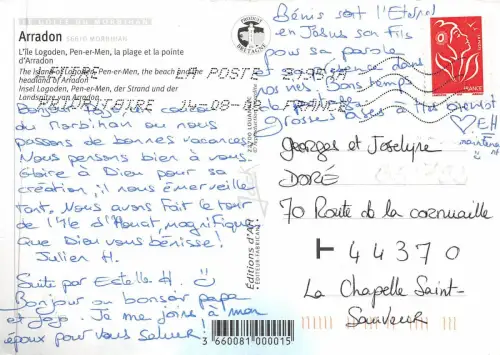 LE GOLFE DU MORBIHAN
Arradon
56610 MORBIHAN
L'île Logoden, Pen-er-Men, la plage et la pointe
d'Arradon
The island of Logoden, Pen-er-Men, the beach and
headland of Arradon
Insel Logoden, Pen-er-Men, der Strand und der
Landspitze von Arradon
PRODUIT EN
BRETAGNE
LETTRE LA POSTE
PRIORITAIRE 14-08-08 FRANCE
Bonjour Papa, en
Morbihan où nous
passons de bonnes vacances.
Nous pensons bien à vous.
Gloire à Dieu pour sa
création, il nous émerveille
tant. Nous avons fait le tour
de l'île d'Houat, magnifique.
Que Dieu vous bénisse!
Julien H.
Suite par Estelle H.
Bonjour ou bonsoir papa
et jojo. Je me joins à mon
époux pour vous saluer!
Bénis soit l'Eternel
en Jésus son fils
pour sa parole
et sa présence dans
nos vies. Bons temps
grosses bises à très bientôt
EH
maintenant
Editions d'Art
EDITEUR-FABRICANT
3 660081 000015
FRANCE
Georges et Joselyne
DORÉ
70 Route de la cornuaille
44370
La Chapelle Saint-
Sauveur